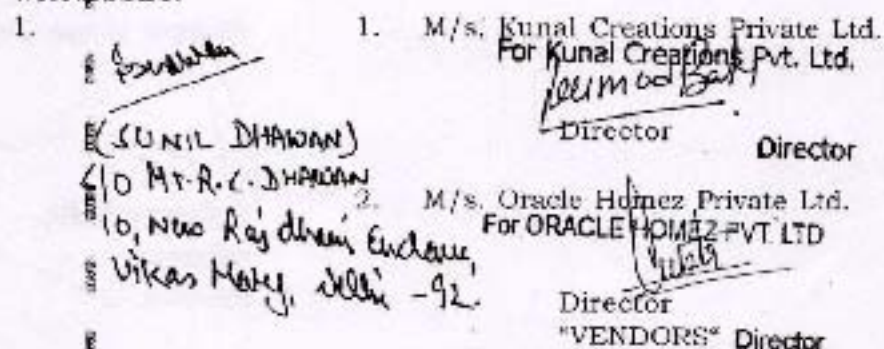 1.
(SUNIL DHAWAN)
S/O Mr. R. C. DHAWAN
10, New Rajdhani Enclave,
Vikas Marg, Delhi -92.
1. M/s. Kunal Creations Private Ltd.
For Kunal Creations Pvt. Ltd.
Director
Director
2. M/s. Oracle Homez Private Ltd.
For ORACLE HOMEZ PVT. LTD
Director
"VENDORS" Director